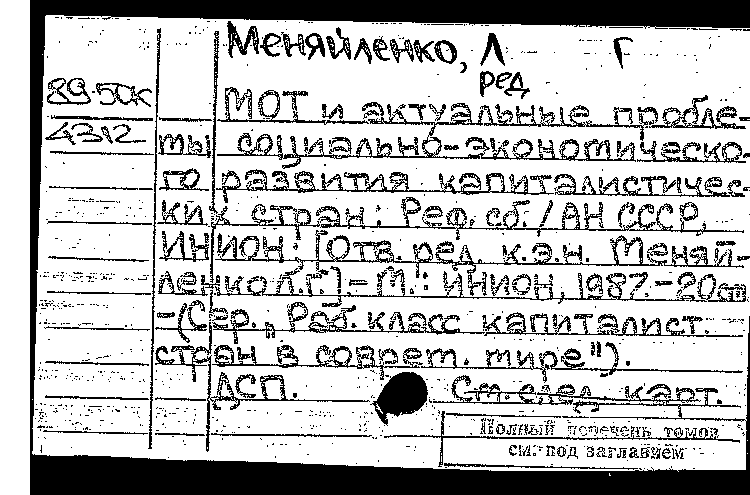 Меняйленко, Л Г
ред
89-5СК
4312
МОТ и актуальные пробле-
мы социально-экономическо-
го развития капиталистичес-
ких стран: Реф. сб. / АН СССР,
ИНИОН; [Отв. ред. к.э.н. Меняй-
ленко Л.Г.].- М.: ИНИОН, 1987.-20см
-(Сер. „Раб. класс капиталист.
стран в соврем. мире").
ДСП. См. след. карт.
Полный перечень томов
см. под заглавием